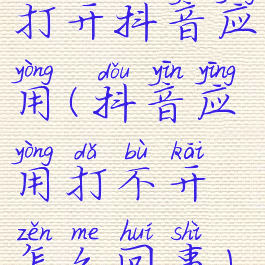 打开抖音应
yòng dǒu yīn yīng
用(抖音应
yòng dǎ bù kāi
用打不开
zěn me huí shì
怎么回事)